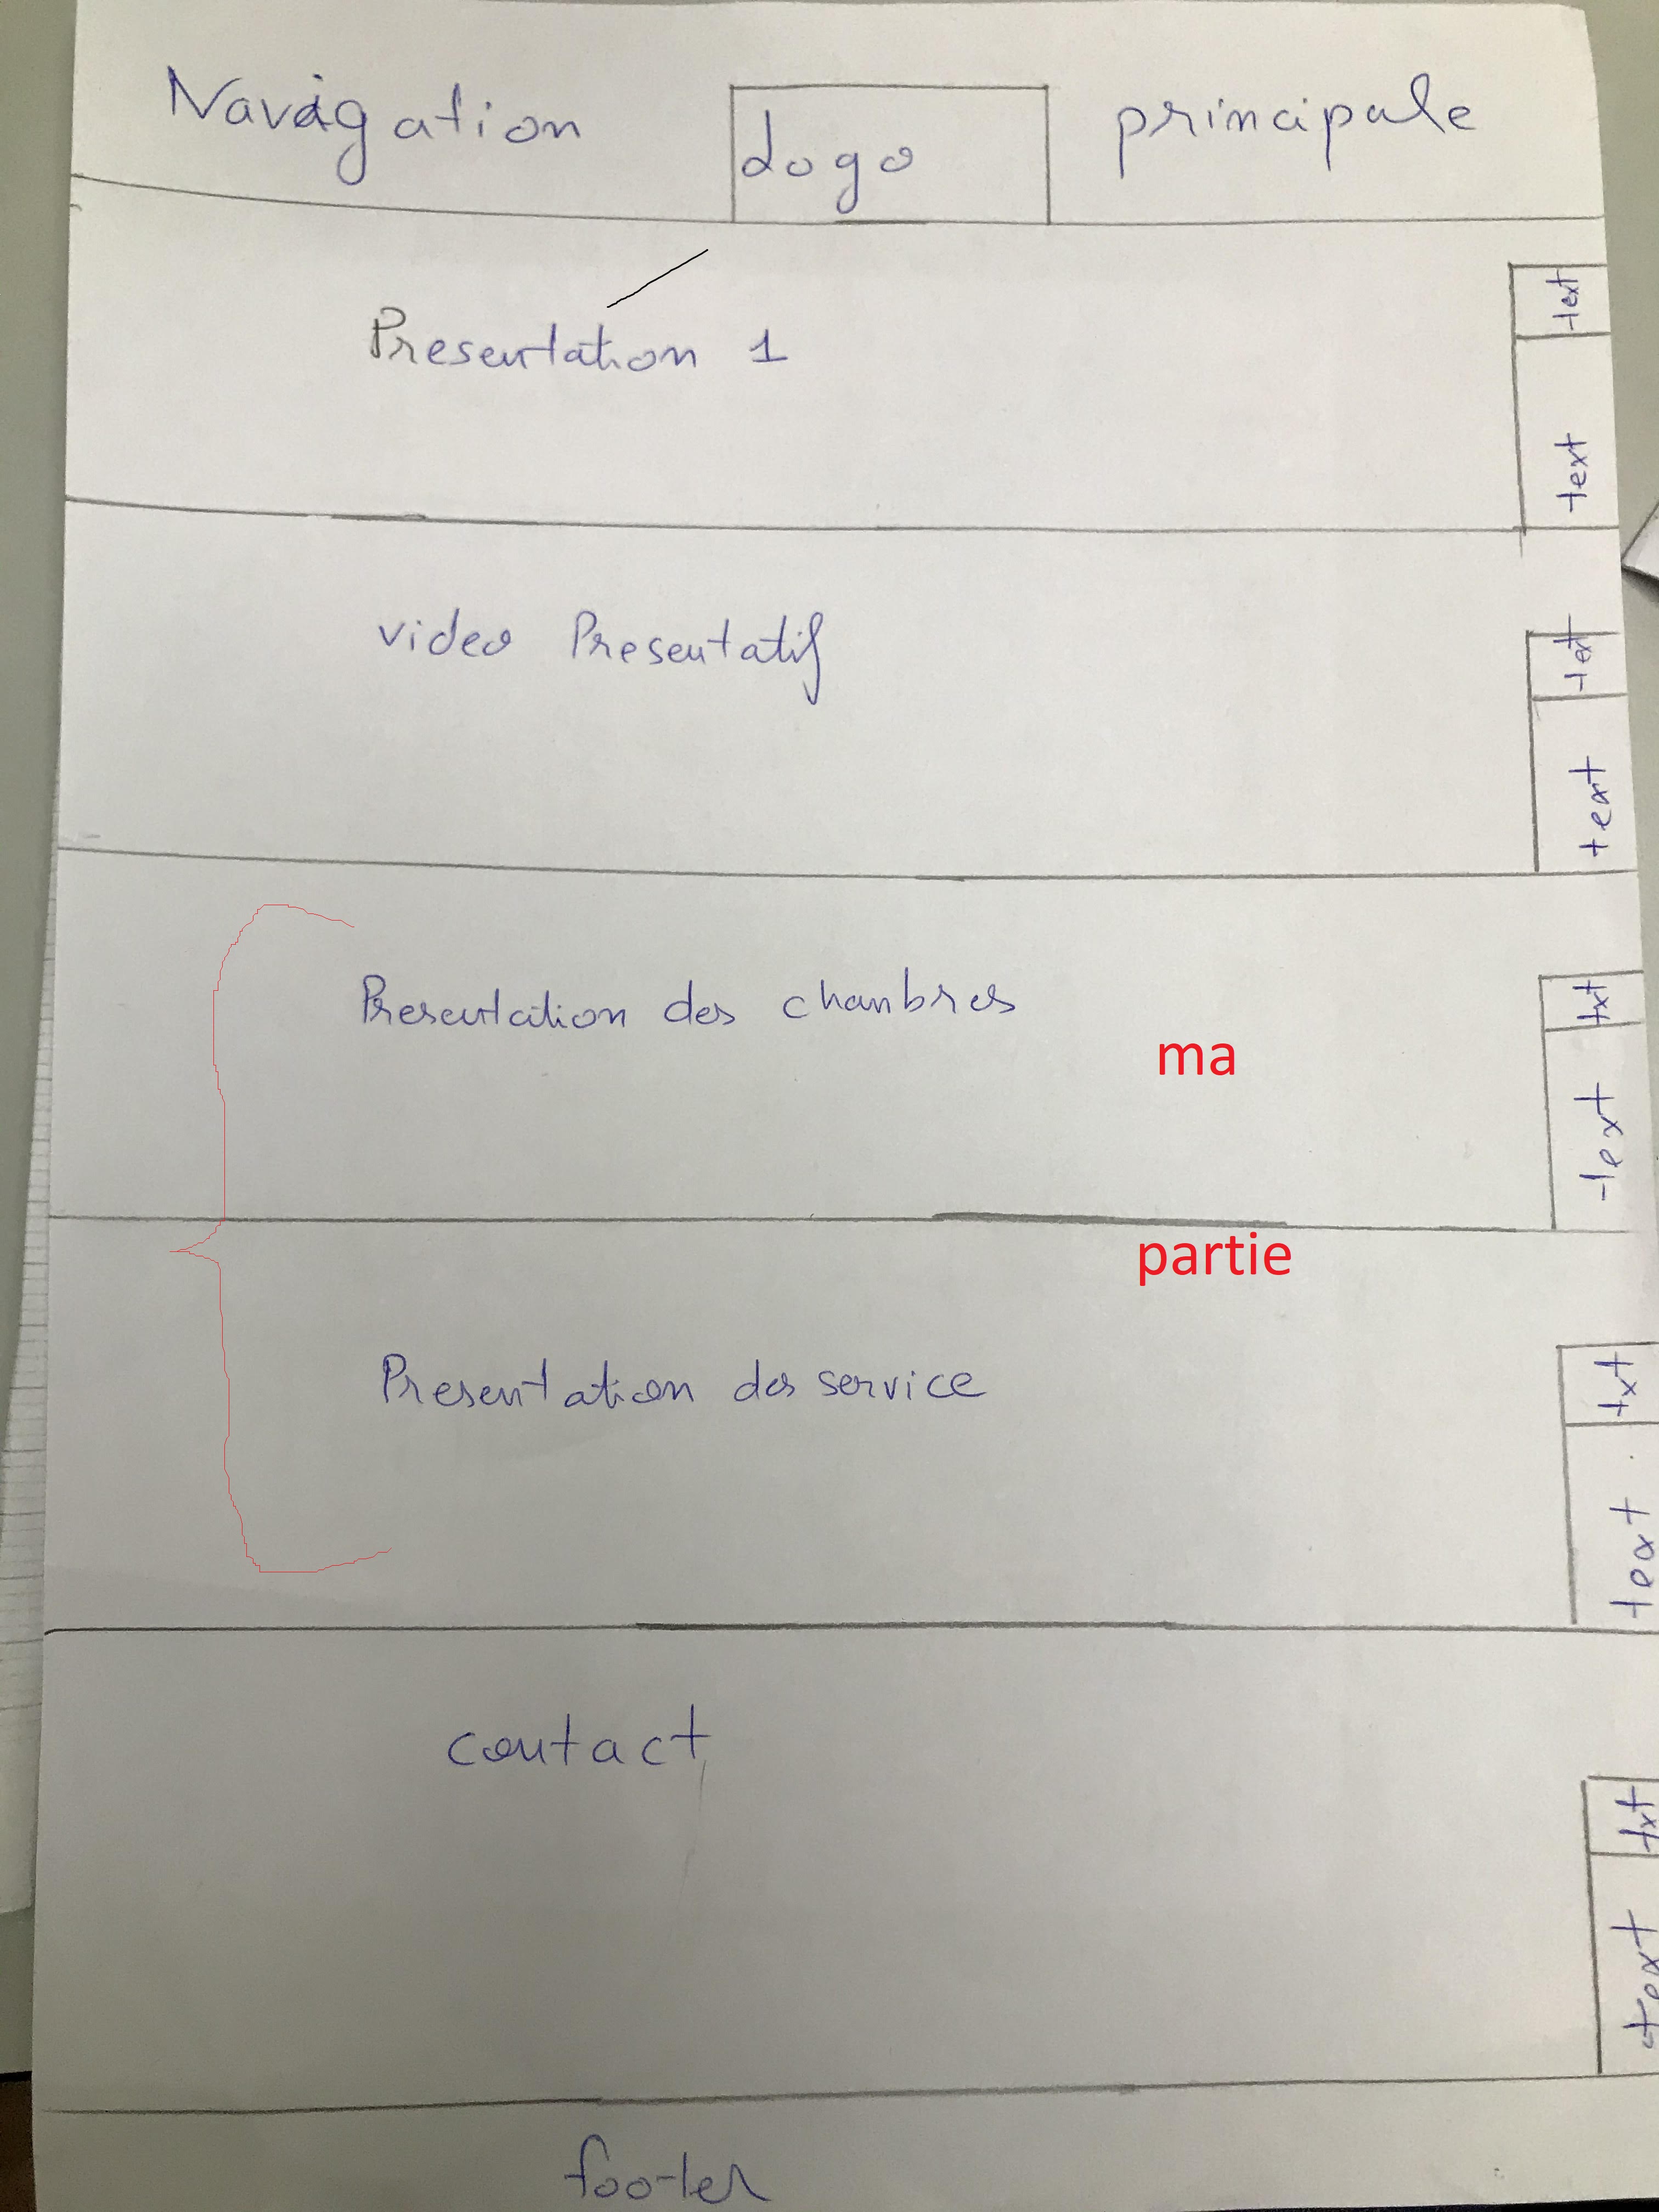 Navigation logo principale
text
Presentation 1
text
text
video Presentatif
text
txt
Presentation des chambres
ma
text
partie
txt
Presentation des service
text
contact
txt
text
footer